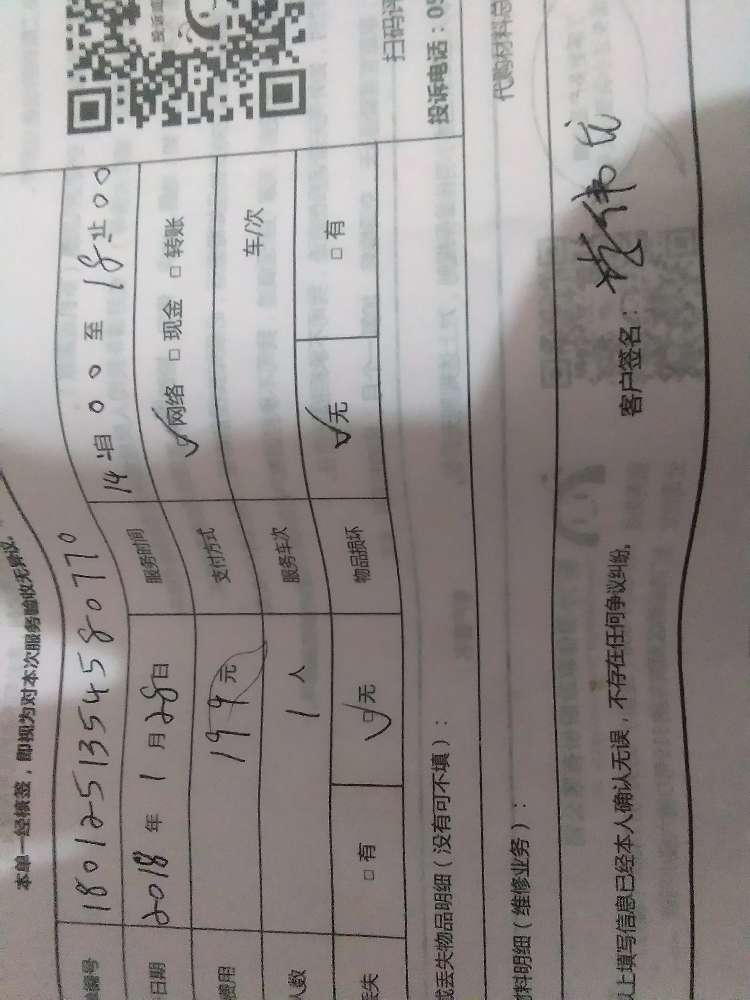 本单一经核签，即视为对本次服务验收无异议。
编号 18012513545580770
日期 2018年1月28日 服务时间 14自00至18止00
费用 199元 支付方式 网络 现金 转账
人数 1人 服务车次 车/次
丢失 有 无 物品损坏 无 有
或丢失物品明细（没有可不填）： 投诉电话：05
材料明细（维修业务）： 代购材料总
以上填写信息已经本人确认无误，不存在任何争议纠纷。 客户签名：